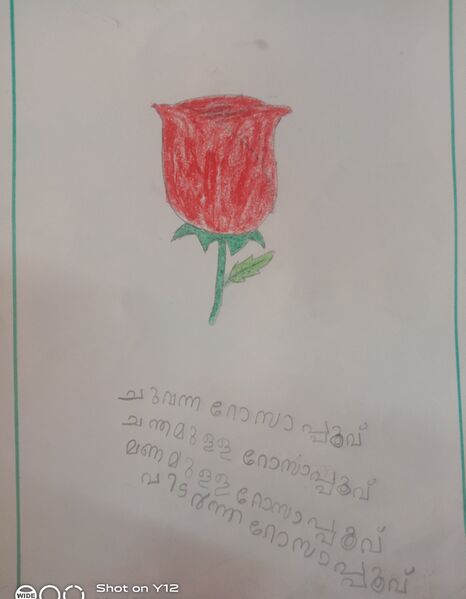 ചുവന്ന റോസാ പ്പൂവ്
ചന്തമുള്ള റോസാപ്പൂവ്
മണമുള്ള റോസാപ്പൂവ്
വിടർന്ന റോസാപ്പൂവ്
WIDE
Shot on Y12